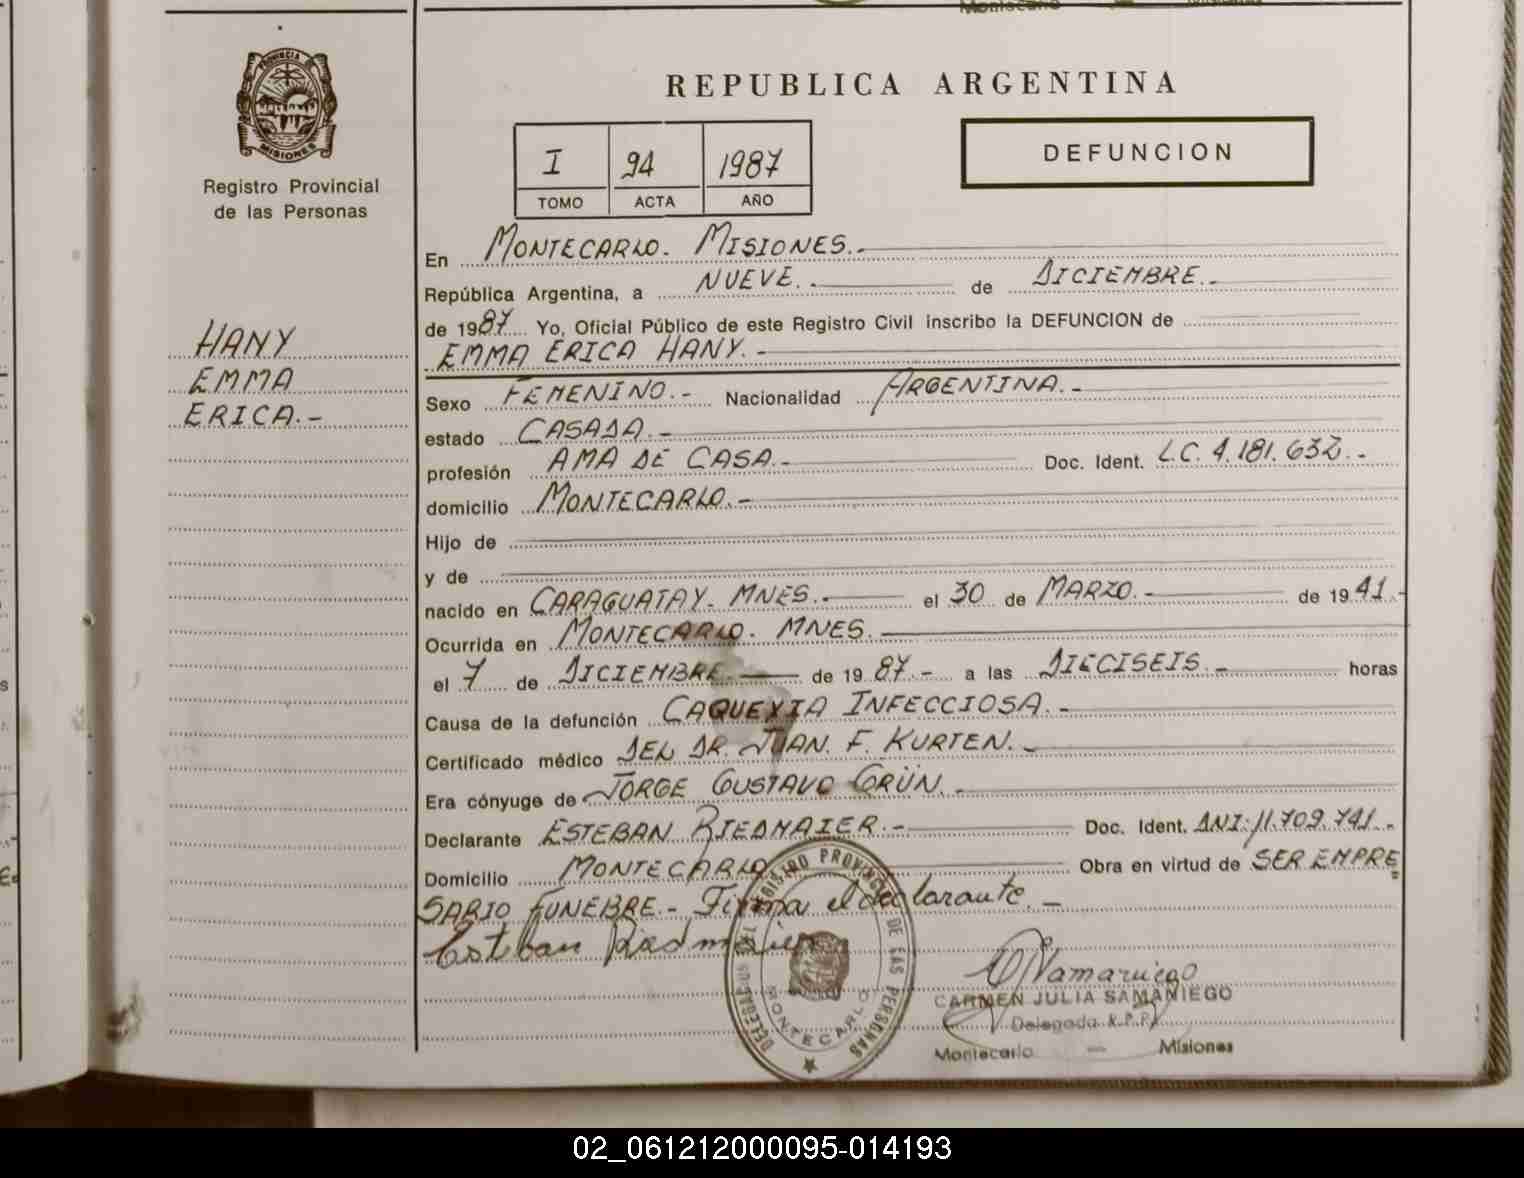 PROVINCIA
MISIONES
Registro Provincial
de las Personas
HANY
EMMA
ERICA.-
REPUBLICA ARGENTINA
I 94 1987
TOMO ACTA AÑO
DEFUNCION
En MONTECARLO. MISIONES.-
República Argentina, a NUEVE.- de DICIEMBRE.-
de 1987 Yo, Oficial Público de este Registro Civil inscribo la DEFUNCION de
EMMA ERICA HANY.-
Sexo FEMENINO.- Nacionalidad ARGENTINA.-
estado CASADA.-
profesión AMA DE CASA.- Doc. Ident. L.C. 4.181.632.-
domicilio MONTECARLO.-
Hijo de
y de
nacido en CARAGUATAY. MNES.- el 30 de MARZO.- de 1941.-
Ocurrida en MONTECARLO. MNES.-
el 7 de DICIEMBRE.- de 1987.- a las DIECISEIS.- horas
Causa de la defunción CAQUEXIA INFECCIOSA.-
Certificado médico DEL DR. JUAN. F. KURTEN.-
Era cónyuge de JORGE GUSTAVO GRÜN.-
Declarante ESTEBAN RIEDMAIER.- Doc. Ident. DNI: 11.709.741.-
Domicilio MONTECARLO Obra en virtud de SER EMPRE
SARIO FUNEBRE.- Firma el declarante.-
Esteban Riedmaier
CARMEN JULIA SAMANIEGO
Delegada R.P.P.
Montecarlo — Misiones
MONTECARLO
02_061212000095-014193